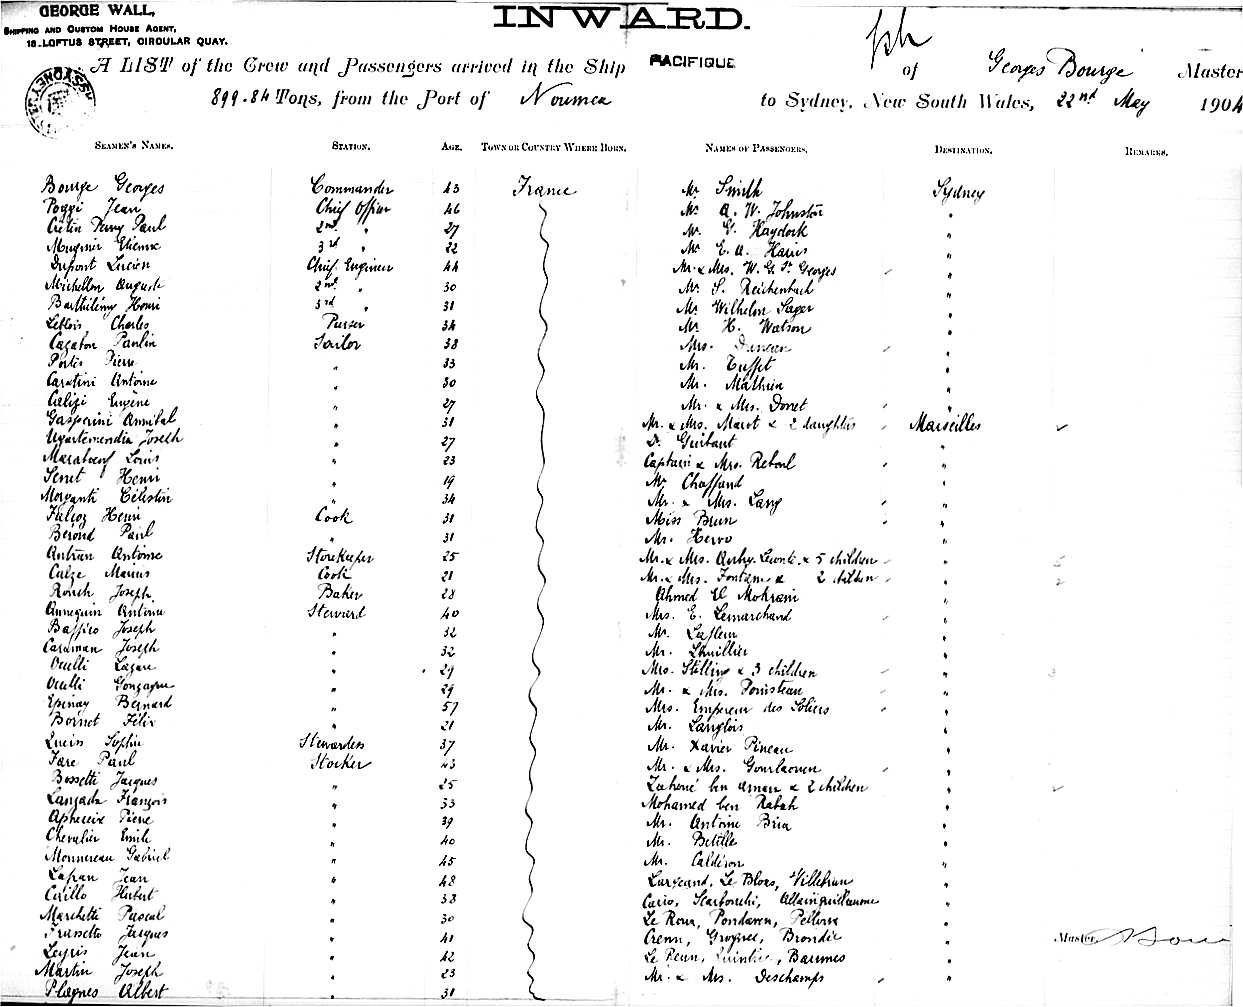 GEORGE WALL,
SHIPPING AND CUSTOM HOUSE AGENT,
18 LOFTUS STREET, CIRCULAR QUAY.
INWARD.
A LIST of the Crew and Passengers arrived in the Ship PACIFIQUE of Georges Bourge Master
899.84 Tons, from the Port of Noumea to Sydney, New South Wales, 22nd May 1904
SEAMEN'S NAMES. STATION. AGE. TOWN OR COUNTRY WHERE BORN. NAMES OF PASSENGERS. DESTINATION. REMARKS.
Bourge Georges Commander 43 France Mr Smith Sydney
Poggi Jean Chief Officer 46 Mr A. W. Johnston "
Cretin Remy Paul 2nd " 27 Mr G. Haydock "
Mugnier Etienne 3rd " 22 Mr E. A. Harris "
Dupont Lucien Chief Engineer 44 Mr & Mrs. W. G St Georges "
Michellon Auguste 2nd " 30 Mr S. Reichenbach "
Barthélémy Henri 3rd " 31 Mr Wilhelm Sager "
Leblois Charles Purser 34 Mr H. Watson "
Cazabon Paulin Sailor 38 Mrs. Duncan "
Portes Pierre " 33 Mr. Tuffet "
Caratini Antoine " 30 Mr. Mathieu "
Calizi Eugène " 27 Mr. & Mrs. Doret "
Gasperini Annibal " 31 Mr. & Mrs. Marot & 2 daughters Marseilles
Ugartemendia Joseph " 27 Dr Guibaut "
Louis " 23 Captain & Mrs. Reboul "
Senet Henri " 19 Mr Chaffaud "
Morganti Célestin " 34 Mr. & Mrs. Lang "
Falcoz Henri Cook 31 Miss Brun "
Berond Paul " 31 Mr. Hervo "
Antran Antoine Storekeeper 25 Mr. & Mrs. & 5 children " 5
Calze Marius Cook 21 Mr. & Mrs. Fontaine & 2 children " 2
Rouch Joseph Baker 28 Ahmed El Mohrani "
Annequin Antoine Steward 40 Mrs. E. Lemarchand "
Baffico Joseph " 32 Mr. Laflem "
Caraman Joseph " 32 Mr. Lhuillier "
Oculli Lazare " 29 Mrs. Stilling & 3 children " 3
Oculli Gonzague " 29 Mr. & Mrs. Ponisteau "
Epinay Bernard " 57 Mrs. Empereur des Soliers "
Bornet Félix " 21 Mr. Langlois "
Lucin Sophie Stewardess 37 Mr. Xavier Pineau "
Fare Paul Stocker 43 Mr. & Mrs. Gourlaouen "
Bossetti Jacques " 25 ben Aman & 2 children "
Langada François " 33 Mohamed ben Rabah "
Pierre " 39 Mr. Antoine Bria "
Chevalier Emile " 40 Mr. Betille "
Monnereau Gabriel " 45 Mr. Calderon "
Lapan Jean " 48 Largeaud, Le Bloas, Villebrun "
Cirillo Hubert " 38 Cario, Scarbonchi, Allainguillaume "
Marchetti Pascal " 30 Le Roux, Pondaven, "
Frassetto Jacques " 41 Crenn, Brondie " Master
Leyris Jean " 42 Le Penn, Baumes "
Martin Joseph " 23 Mr. & Mrs. Deschamps "
Plagnes Albert " 31